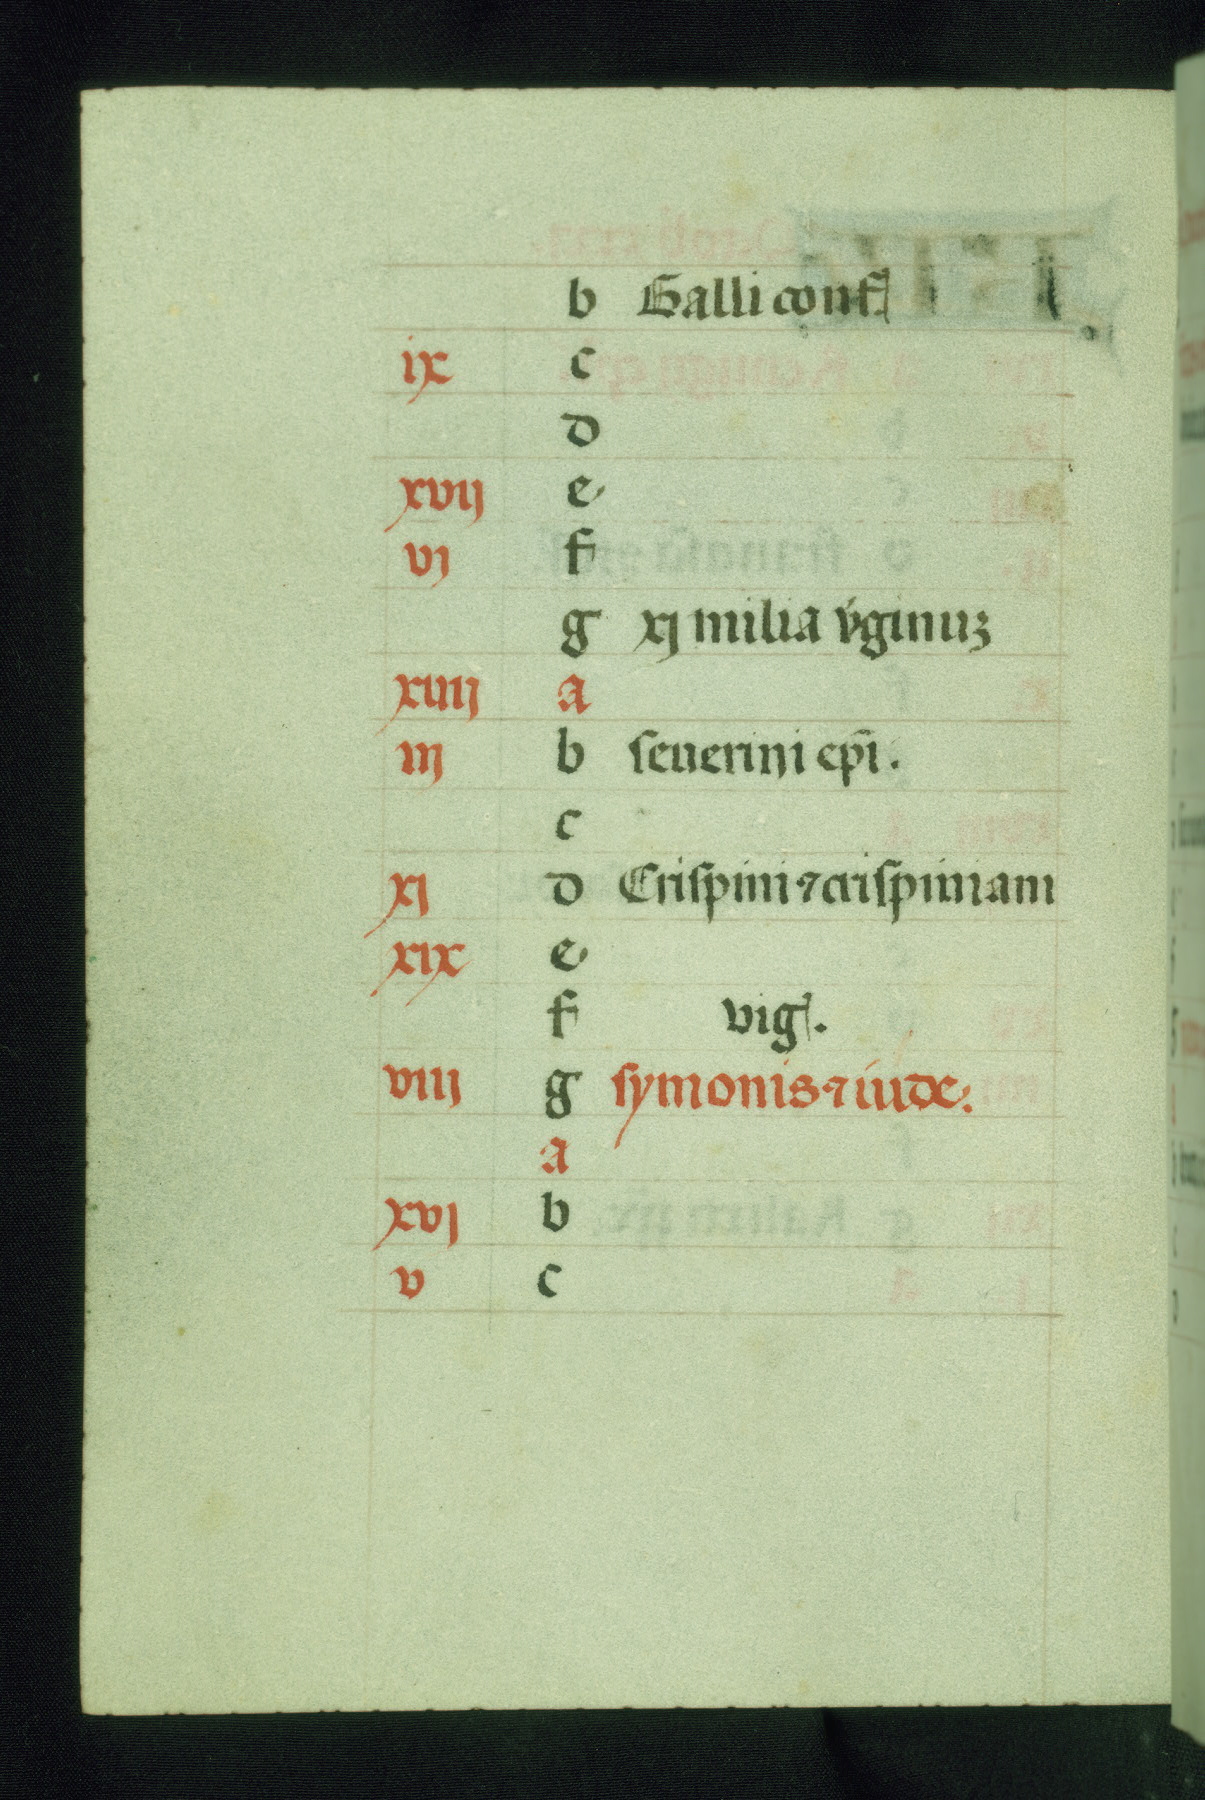 b Galli conf
ix c
d
xvij e
vj f
g xj milia v̾ginuꝫ
xiiij a
iij b seuerini ep̄i .
c
xj d Crispini ⁊ crispiniani
xix e
f vig .
viij g symonis ⁊ iude .
a
xvj b
v c